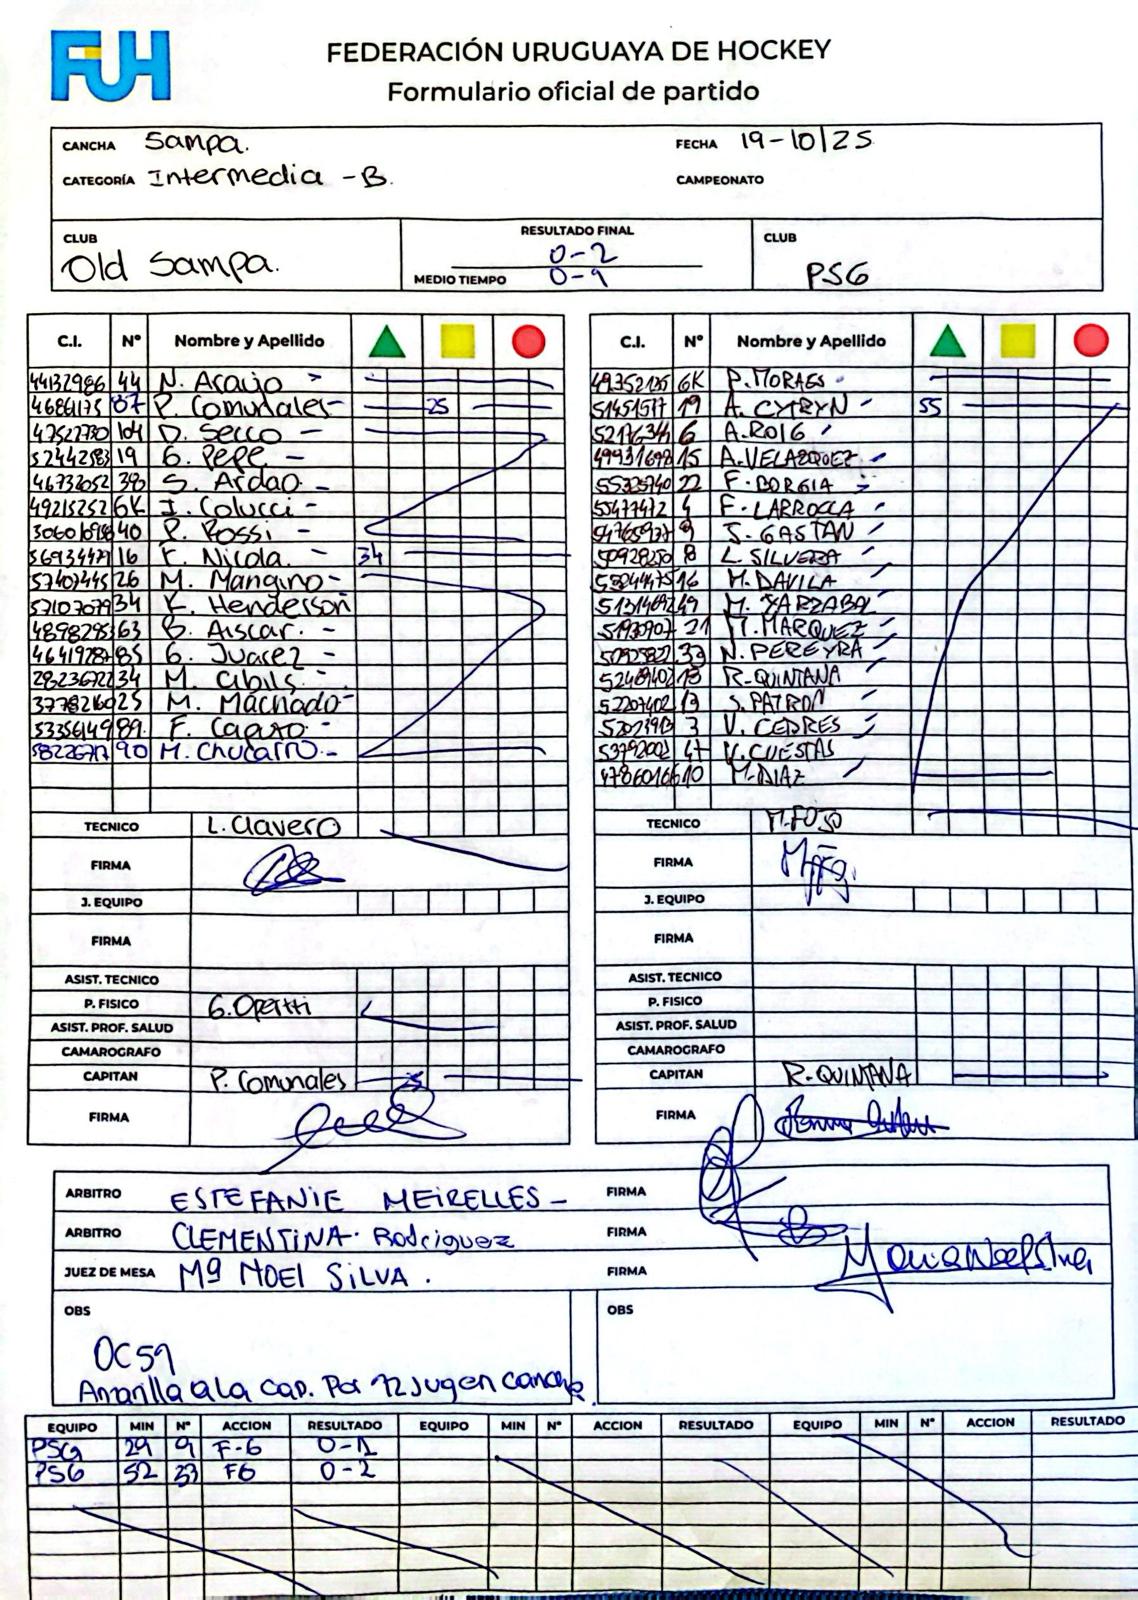 FUH
FEDERACIÓN URUGUAYA DE HOCKEY
Formulario oficial de partido
CANCHA Sampa. FECHA 19-10/25
CATEGORÍA Intermedia -B. CAMPEONATO
CLUB Old Sampa. RESULTADO FINAL 0-2 CLUB PSG
MEDIO TIEMPO 0-1
C.I. N° Nombre y Apellido C.I. N° Nombre y Apellido
44132986 44 N. Araujo P. MORAES
87 P. Comunales 25 19 A. CYRYN 55
47522730 104 D. Secco 6 A. ROIG
52442583 19 G. Pepe 15 A. VELAZQUEZ
46732052 38 S. Ardao 22 F. BORGIA
49215252 GK J. Colucci 4 F. LARROCCA
40 P. Rossi 9 S. GASTAN
16 F. Nicola. 34 8 L. SILVERA
57407445 26 M. Mangino 16 M. DAVILA
57107079 34 K. Henderson 49 M. YARZABAL
4898295 63 B. Aiscar. 21 M. MARQUEZ
85 G. Juarez 33 N. PEREYRA
34 M. Cibils R. QUINTANA
25 M. Machado S. PATRON
53356149 89 F. Caputo 3 V. CEDRES
90 M. Chucarro 47 V. CUESTAS
10 M. DIAZ
TECNICO L. Clavero TECNICO
FIRMA FIRMA
J. EQUIPO J. EQUIPO
FIRMA FIRMA
ASIST. TECNICO ASIST. TECNICO
P. FISICO G. Opertti P. FISICO
ASIST. PROF. SALUD ASIST. PROF. SALUD
CAMAROGRAFO CAMAROGRAFO
CAPITAN P. Comunales CAPITAN R. QUINTANA
FIRMA FIRMA
ARBITRO ESTEFANIE MEIRELLES FIRMA
ARBITRO CLEMENTINA Rodriguez FIRMA
JUEZ DE MESA Mª NOEL SILVA. FIRMA
OBS OBS
Amarilla a la cap. Por 12 Jug en cancha.
EQUIPO MIN N° ACCION RESULTADO EQUIPO MIN N° ACCION RESULTADO EQUIPO MIN N° ACCION RESULTADO
PSG 29 9 F-G 0-1
PSG 52 33 FG 0-2